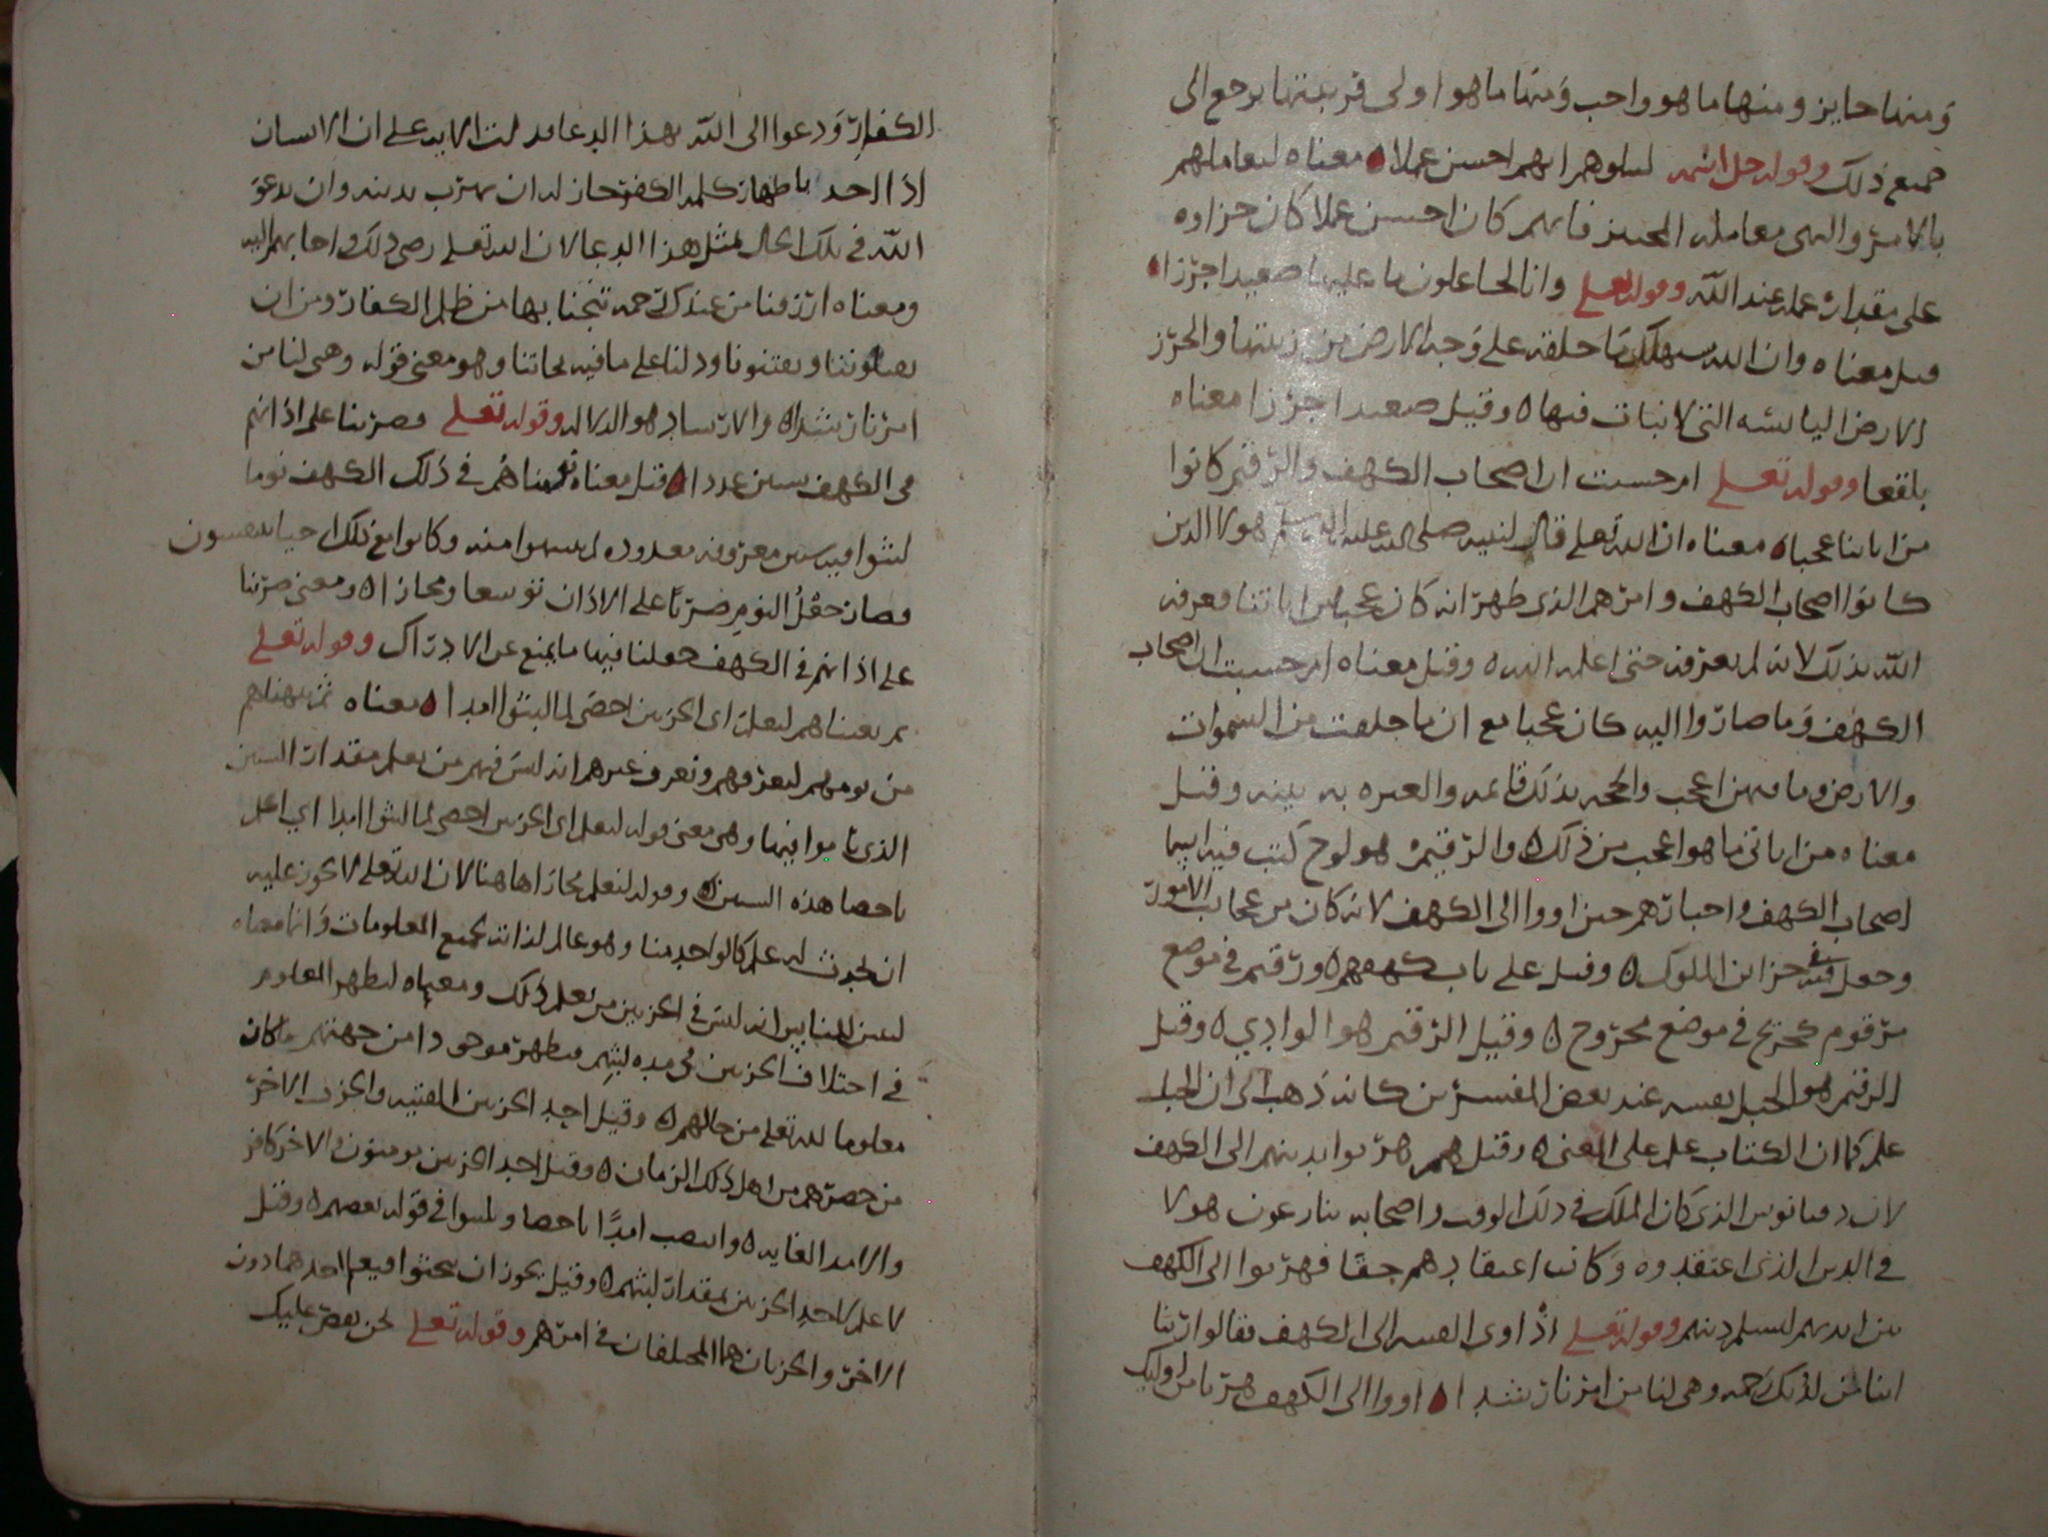 ومنها جايز ومنها ما هو واجب ومنها ما هو اولى فزينتها يرجع الى
جميع ذلك وقوله جل اسمه لنبلوهم ايهم احسن عملا معناه ليعاملهم
بالامر والنهى معامله المختبر فايهم كان احسن عملا كان جزاوه
على مقدار عمله عند الله وقوله تعلى وانا لجاعلون ما عليها صعيدا جرزا
قيل معناه وان الله سيهلك ما خلقه على وجه الارض من زينتها والجرز
الارض اليابسه التى لا نبات فيها وقيل صعيدا جرزا معناه
بلقعا وقوله تعلى ام حسبت ان اصحاب الكهف والرقيم كانوا
من اياتنا عجبا معناه ان الله تعلى قال لنبيه صلى الله عليه وسلم هولا الذين
كانوا اصحاب الكهف وامرهم الذى ظهر انه كان عجبا من اياتنا فعرفه
الله بذلك لانه لم يعرفه حتى اعلمه الله وقيل معناه ام حسبت ان اصحاب
الكهف وما صاروا اليه كان عجبا مع ان ما خلقت من السموات
والارض وما فيهن اعجب والحجه بذلك قايمه والعبره به بينه وقيل
معناه من اياتى ما هو اعجب من ذلك والرقيم هو لوح كتب فيه اسما
اصحاب الكهف واخبارهم حين اووا الى الكهف لانه كان من عجايب الامور
وجعل فى خزاين الملوك وقيل على باب كهفهم ورقيم فى موضع
مرقوم كجريح فى موضع مجروح وقيل الرقيم هو الوادي وقيل
الرقيم هو الجبل نفسه عند بعض المفسرين كانه ذهب الى ان الجبل
علم كما ان الكتاب علم على المعنى وقيل هم هربوا بدينهم الى الكهف
لان دقيانوس الذى كان الملك فى ذلك الوقت واصحابه ينازعون هولا
فى الدين الذى اعتقدوه وكانت اعتقادهم حقا فهربوا الى الكهف
من ايديهم ليسلم دينهم وقوله تعلى اذ اوى الفتيه الى الكهف فقالوا ربنا
اتنا من لدنك رحمه وهى لنا من امرنا رشدا اووا الى الكهف هربا من اوليك
الكفار ودعوا الى الله بهذا الدعا فدلت الايه على ان الانسان
اذا الجد باظهار كلمه الكفر جاز له ان يهرب بدينه وان يدعو
الله فى تلك الحال بمثل هذا الدعا لان الله تعلى رضى ذلك واجابهم اليه
ومعناه ارزقنا من عندك رحمه تنجنا بها من ظلم الكفار ومن ان
يضلوننا ويفتنونا ودلنا على ما فيه نجاتنا وهو معنى قوله وهى لنا من
امرنا رشدا والارشاد هو الدلاله وقوله تعلى فضربنا على اذانهم
فى الكهف سنين عددا قيل معناه نومناهم فى ذلك الكهف نوما
لبثوا فيه سنين معروفه معدوده لم ينتبهوا منه وكانوا مع ذلك احيا يتنفسون
فصار جعل النوم ضربا على الاذان توسعا ومجازا ومعنى ضربنا
على اذانهم فى الكهف جعلنا فيها ما يمنع عن الادراك وقوله تعلى
ثم بعثناهم لنعلم اى الحزبين احصى لما لبثوا امدا معناه ثم نبهناهم
من نومهم لنعرفهم ونعرف غيرهم انه ليس فيهم من يعلم مقدار السنين
الذى ناموا فيها وهى معنى قوله لنعلم اى الحزبين احصى لما لبثوا امدا اي اعلم
باحصا هذه السنين وقوله لنعلم مجاز هاهنا لان الله تعلى لا يجوز عليه
ان يحدث له علم كالواحد منا وهو عالم لذاته بجميع المعلومات وانما معناه
ليبين للناس انه ليس فى الحزبين من يعلم ذلك ومعناه ليظهر المعلوم
فى اختلاف الحزبين فى مده لبثهم فيظهر موجودا من جهتهم ما كان
معلوما لله تعلى من حالهم وقيل احد الحزبين الفتيه والحزب الاخر
من حضرهم من اهل ذلك الزمان وقيل احد الحزبين مومنون والاخر كافر
والامد الغايه وانتصب امدًا باحصا ولبثوا فى قول بعضهم وقيل
لا علم لاحد الحزبين بمقدار لبثهم وقيل يجوز ان يبعثوا فيعلم احدهما دون
الاخر والحزبان هما المختلفان فى امرهم وقوله تعلى نحن نقص عليك